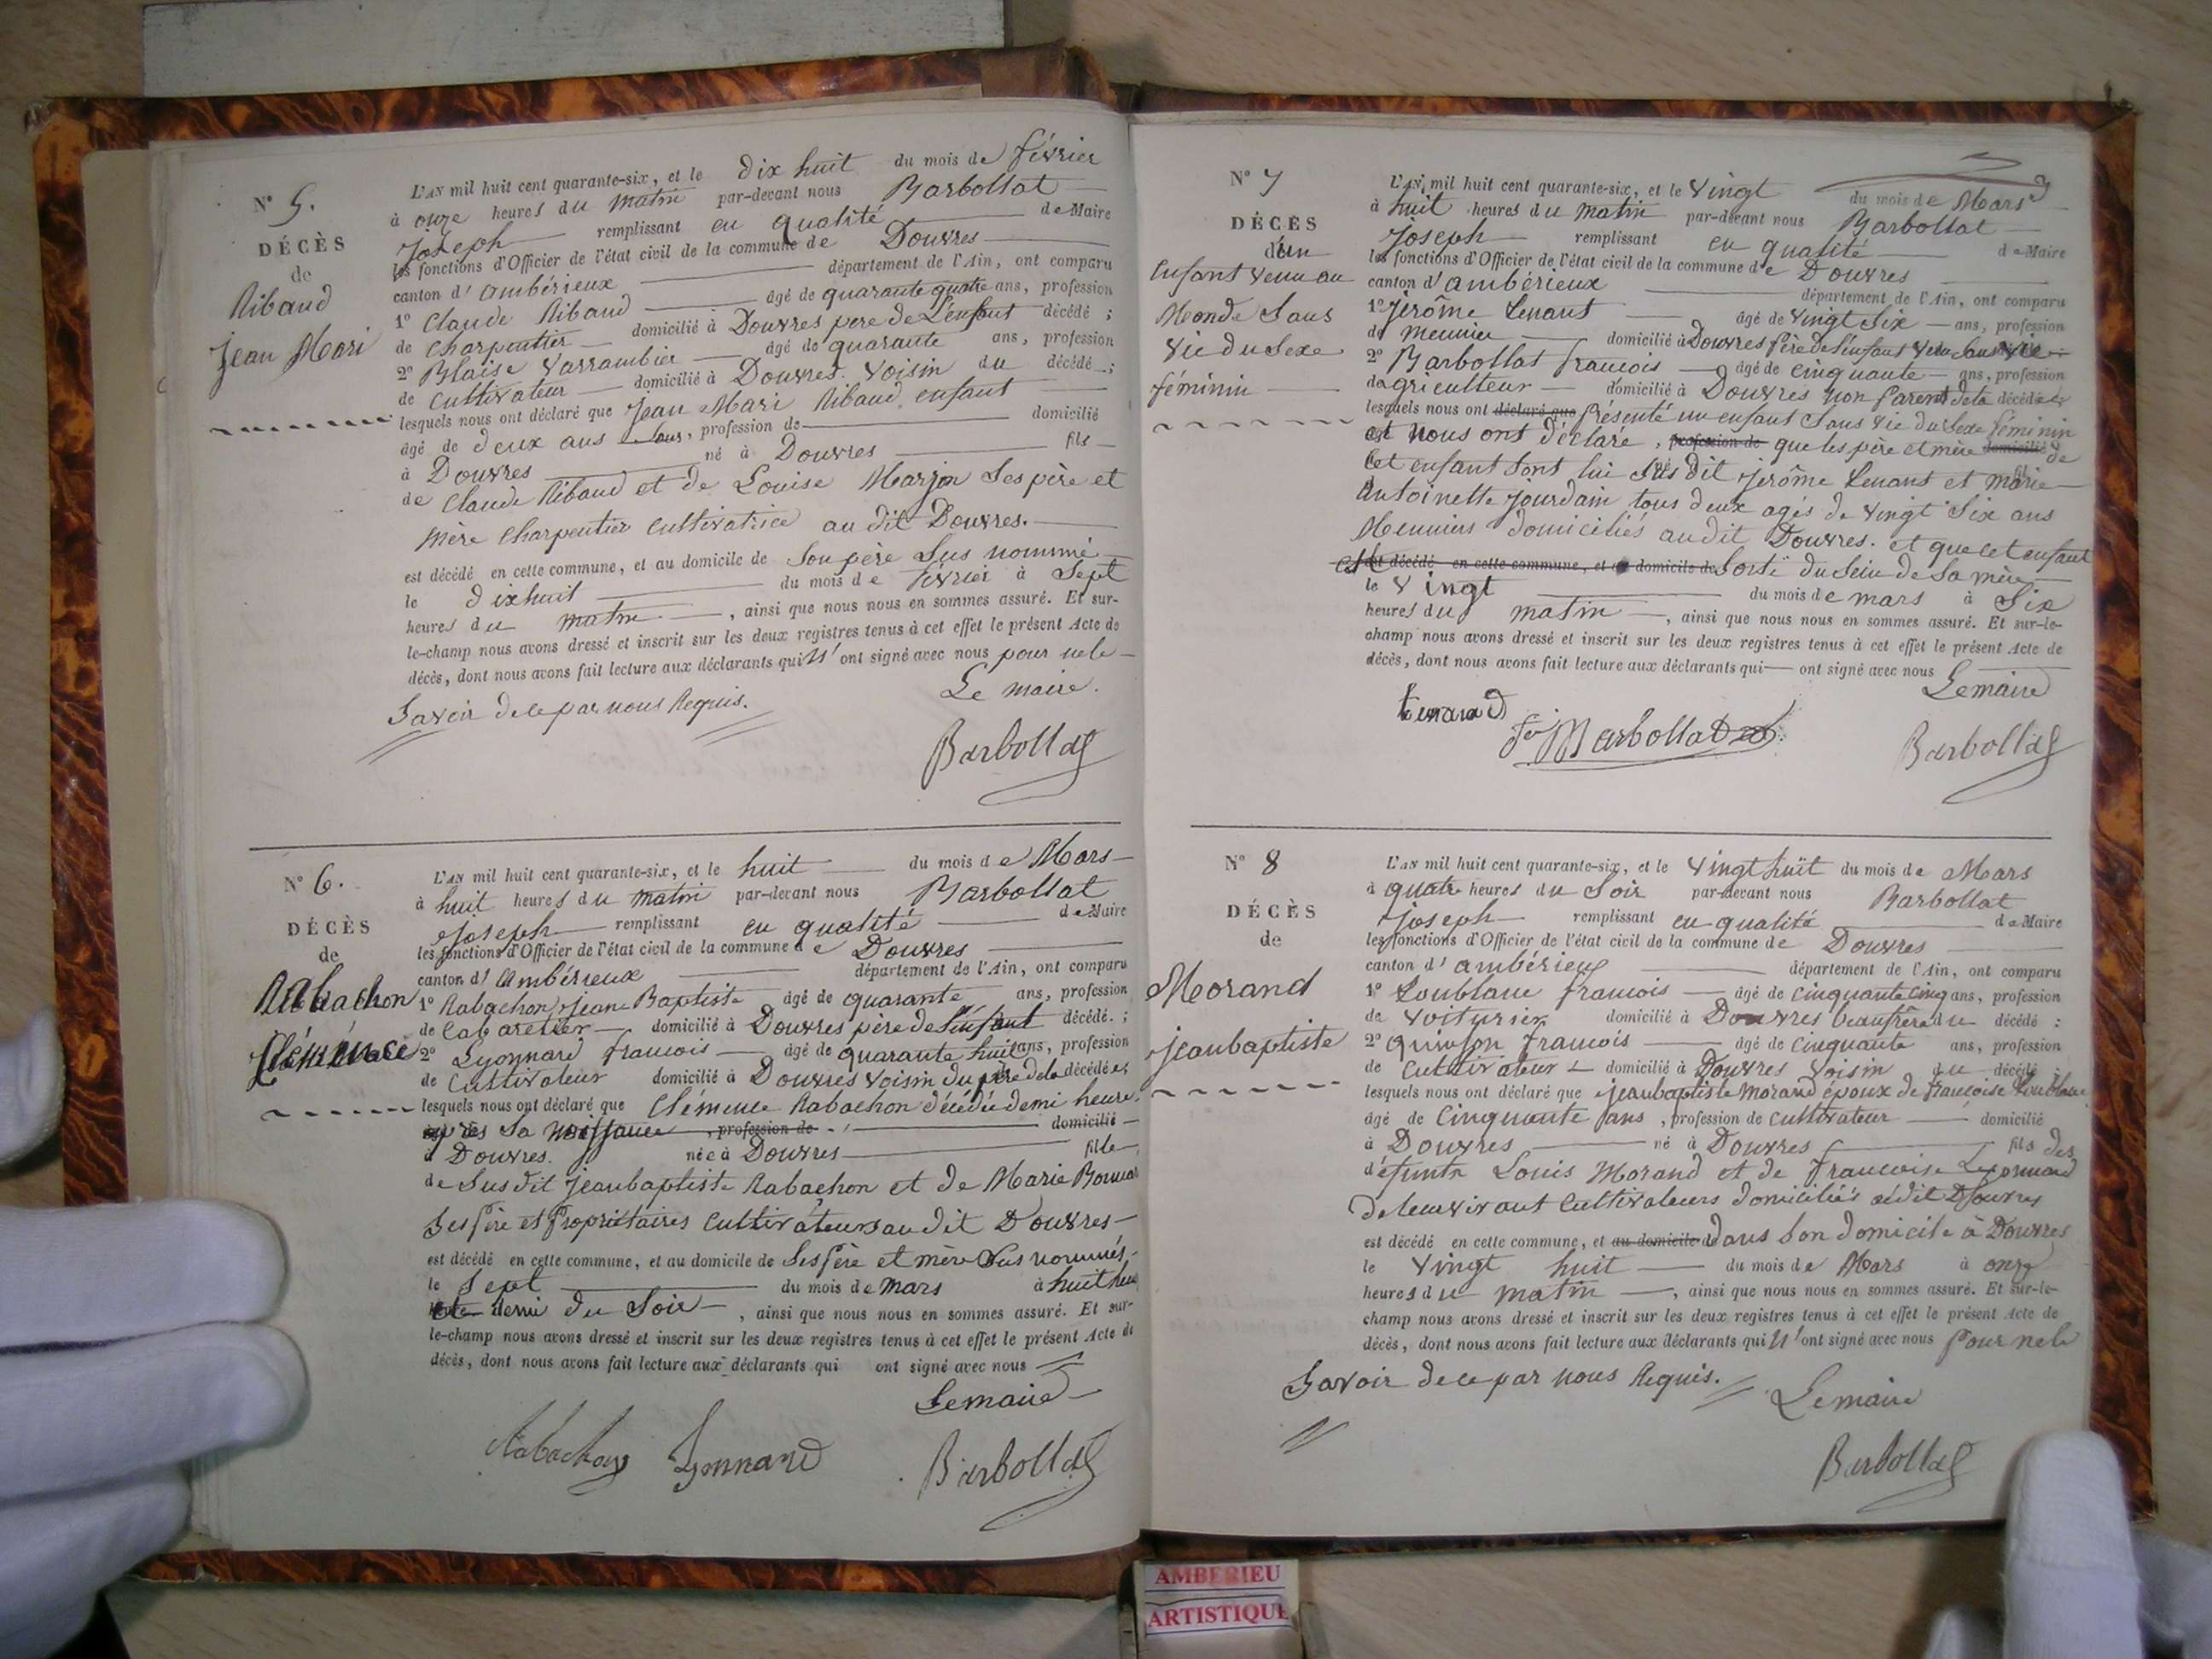 N° 5.
DÉCÈS
de
Ribaud
Jean Mari
L'AN mil huit cent quarante-six, et le dix huit du mois de février
à onze heures du matin par-devant nous Barbollat
Joseph remplissant en qualité de Maire
les fonctions d'Officier de l'état civil de la commune de Douvres
canton d'ambérieux département de l'Ain, ont comparu
1° Claude Ribaud âgé de quarante quatre ans, profession
de Charpentier domicilié à Douvres pere de L'enfant décédé ;
2° Blaise Varrambier âgé de quarante ans, profession
de Cultivateur domicilié à Douvres. Voisin du décédé ;
lesquels nous ont déclaré que Jean Mari Ribaud enfant
âgé de deux ans , profession de domicilié
à Douvres né à Douvres fils
de Claude Ribaud et de Louise Marjon Ses père et
Mère Charpentier Cultivatrice au dit Douvres.
est décédé en cette commune, et au domicile de Son père Sus nommé
le dixhuit du mois de février à Sept
heures du matin , ainsi que nous nous en sommes assuré. Et sur-
le-champ nous avons dressé et inscrit sur les deux registres tenus à cet effet le présent Acte de
décès, dont nous avons fait lecture aux déclarants qui N'ont signé avec nous pour nele
Savoir dece par nous Requis.
Le maire.
Barbollat
N° 6.
DÉCÈS
de
Rabachon
Clémence
L'AN mil huit cent quarante-six, et le huit du mois de Mars
à huit heures du matin par-devant nous Barbollat
Joseph remplissant en qualité de Maire
les fonctions d'Officier de l'état civil de la commune de Douvres
canton d'Ambérieux département de l'Ain, ont comparu
1° Rabachon Jean Baptiste âgé de quarante ans, profession
de Cabaretier domicilié à Douvres père de L'enfant décédé. ;
2° Lyonnard francois âgé de quarante huit ans, profession
de Cultivateur domicilié à Douvres Voisin du père dela décédée ;
lesquels nous ont déclaré que Clémence Rabachon décédée demi heure
après Sa naissance , profession de domicilié
à Douvres. née à Douvres fille
de Susdit Jeanbaptiste Rabachon et de Marie
Ses Père et Propriétaires Cultivateurs au dit Douvres
est décédé en cette commune, et au domicile de Ses Père et mère Sus nommés
le Sept du mois de mars à huit heu
et demi du Soir , ainsi que nous nous en sommes assuré. Et sur-
le-champ nous avons dressé et inscrit sur les deux registres tenus à cet effet le présent Acte de
décès, dont nous avons fait lecture aux déclarants qui ont signé avec nous
Lemaire
Rabachon Lyonnard Barbollat
N° 7
DÉCÈS
d'un
Enfant venu au
Monde Sans
Vie du Sexe
féminin
L'AN mil huit cent quarante-six, et le Vingt du mois de Mars
à huit heures du matin par-devant nous Barbollat
Joseph remplissant en qualité de Maire
les fonctions d'Officier de l'état civil de la commune de Douvres
canton d'ambérieux département de l'Ain, ont comparu
1° Jérôme Tenant âgé de Vingt Six ans, profession
de Meunier domicilié à Douvres Père de L'enfant Venu Sans Vie
2° Barbollat francois âgé de cinquante ans, profession
d'agriculteur domicilié à Douvres non Parent dela décédée
lesquels nous ont déclaré que Présenté un enfant Sans Vie du Sexe féminin
et Nous ont déclaré , profession de que les père et mère domicilié de
Cet enfant Sont lui Sus dit Jerôme Tenant et marie
Antoinette Jourdain tous deux agés de Vingt Six ans
Meuniers domiciliés audit Douvres. et que cet enfant
est décédé en cette commune, et au domicile de Sorti du Sein de Sa mère
le Vingt du mois de mars à Six
heures du matin , ainsi que nous nous en sommes assuré. Et sur-le-
champ nous avons dressé et inscrit sur les deux registres tenus à cet effet le présent Acte de
décès, dont nous avons fait lecture aux déclarants qui ont signé avec nous
Lemaire
Barbollat
Barbollat
N° 8
DÉCÈS
de
Morand
jeanbaptiste
L'AN mil huit cent quarante-six, et le Vingt huit du mois de Mars
à quatre heures du Soir par-devant nous Barbollat
Joseph remplissant en qualité de Maire
les fonctions d'Officier de l'état civil de la commune de Douvres
canton d'ambérieux département de l'Ain, ont comparu
1° Loublanc francois âgé de cinquante cinq ans, profession
de Voiturier domicilié à Douvres beaufrère du décédé :
2° Quinson francois âgé de Cinquante ans, profession
de Cultivateur domicilié à Douvres Voisin du décédé
lesquels nous ont déclaré que jeanbaptiste Morand époux de francoise Loublanc
âgé de Cinquante ans , profession de Cultivateur domicilié
à Douvres né à Douvres fils des
défunts Louis Morand et de francoise
De leur vivant Cultivateurs domiciliés audit Douvres
est décédé en cette commune, et au domicile de dans Son domicile à Douvres
le Vingt huit du mois de Mars à onze
heures du matin , ainsi que nous nous en sommes assuré. Et sur-le-
champ nous avons dressé et inscrit sur les deux registres tenus à cet effet le présent Acte de
décès, dont nous avons fait lecture aux déclarants qui N'ont signé avec nous Pour nele
Savoir dece par nous Requis.
Lemaire
Barbollat
AMBERIEU
ARTISTIQUE